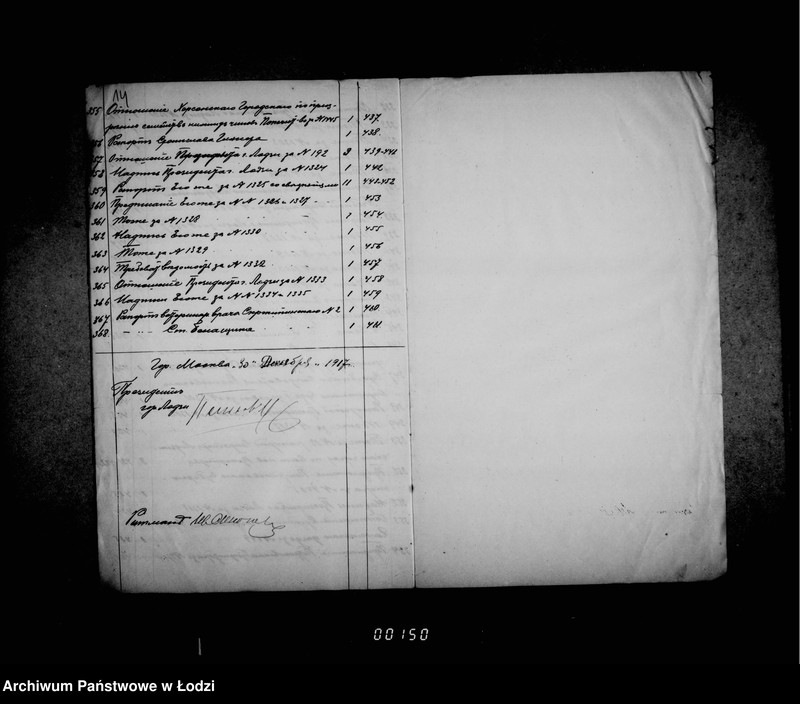 14
355 Отношение Херсонскаго Городскаго по приз-
рению семейств нижних чинов 1 437
356 Рапорт 1 438
357 Отношение Президента г. Лодзи за N 192 3 439-441
358 Надпись Президента г. Лодзи за N 1324 1 442
359 Рапорт Его же за N 1325 со 11 443-452
360 Предписание Его же за N N 1326 и 1327 1 453
361 Тоже за N 1328 1 454
362 Надпись Его же за N 1330 1 455
363 Тоже за N 1329 1 456
364 ведомость за N 1332 1 457
365 Отношение Президента г. Лодзи за N 1333 1 458
366 Надписи Его же за N N 1334 и 1335 1 459
367 Рапорт ветеринар. врача N 2 1 460
368 - „ - Ст. 1 461
Гор. Москва „30" Декабря 1917
Президент
гор. Лодзи
00150
Archiwum Państwowe w Łodzi